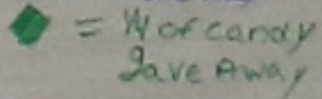 = 1/4 of candy
gave Away